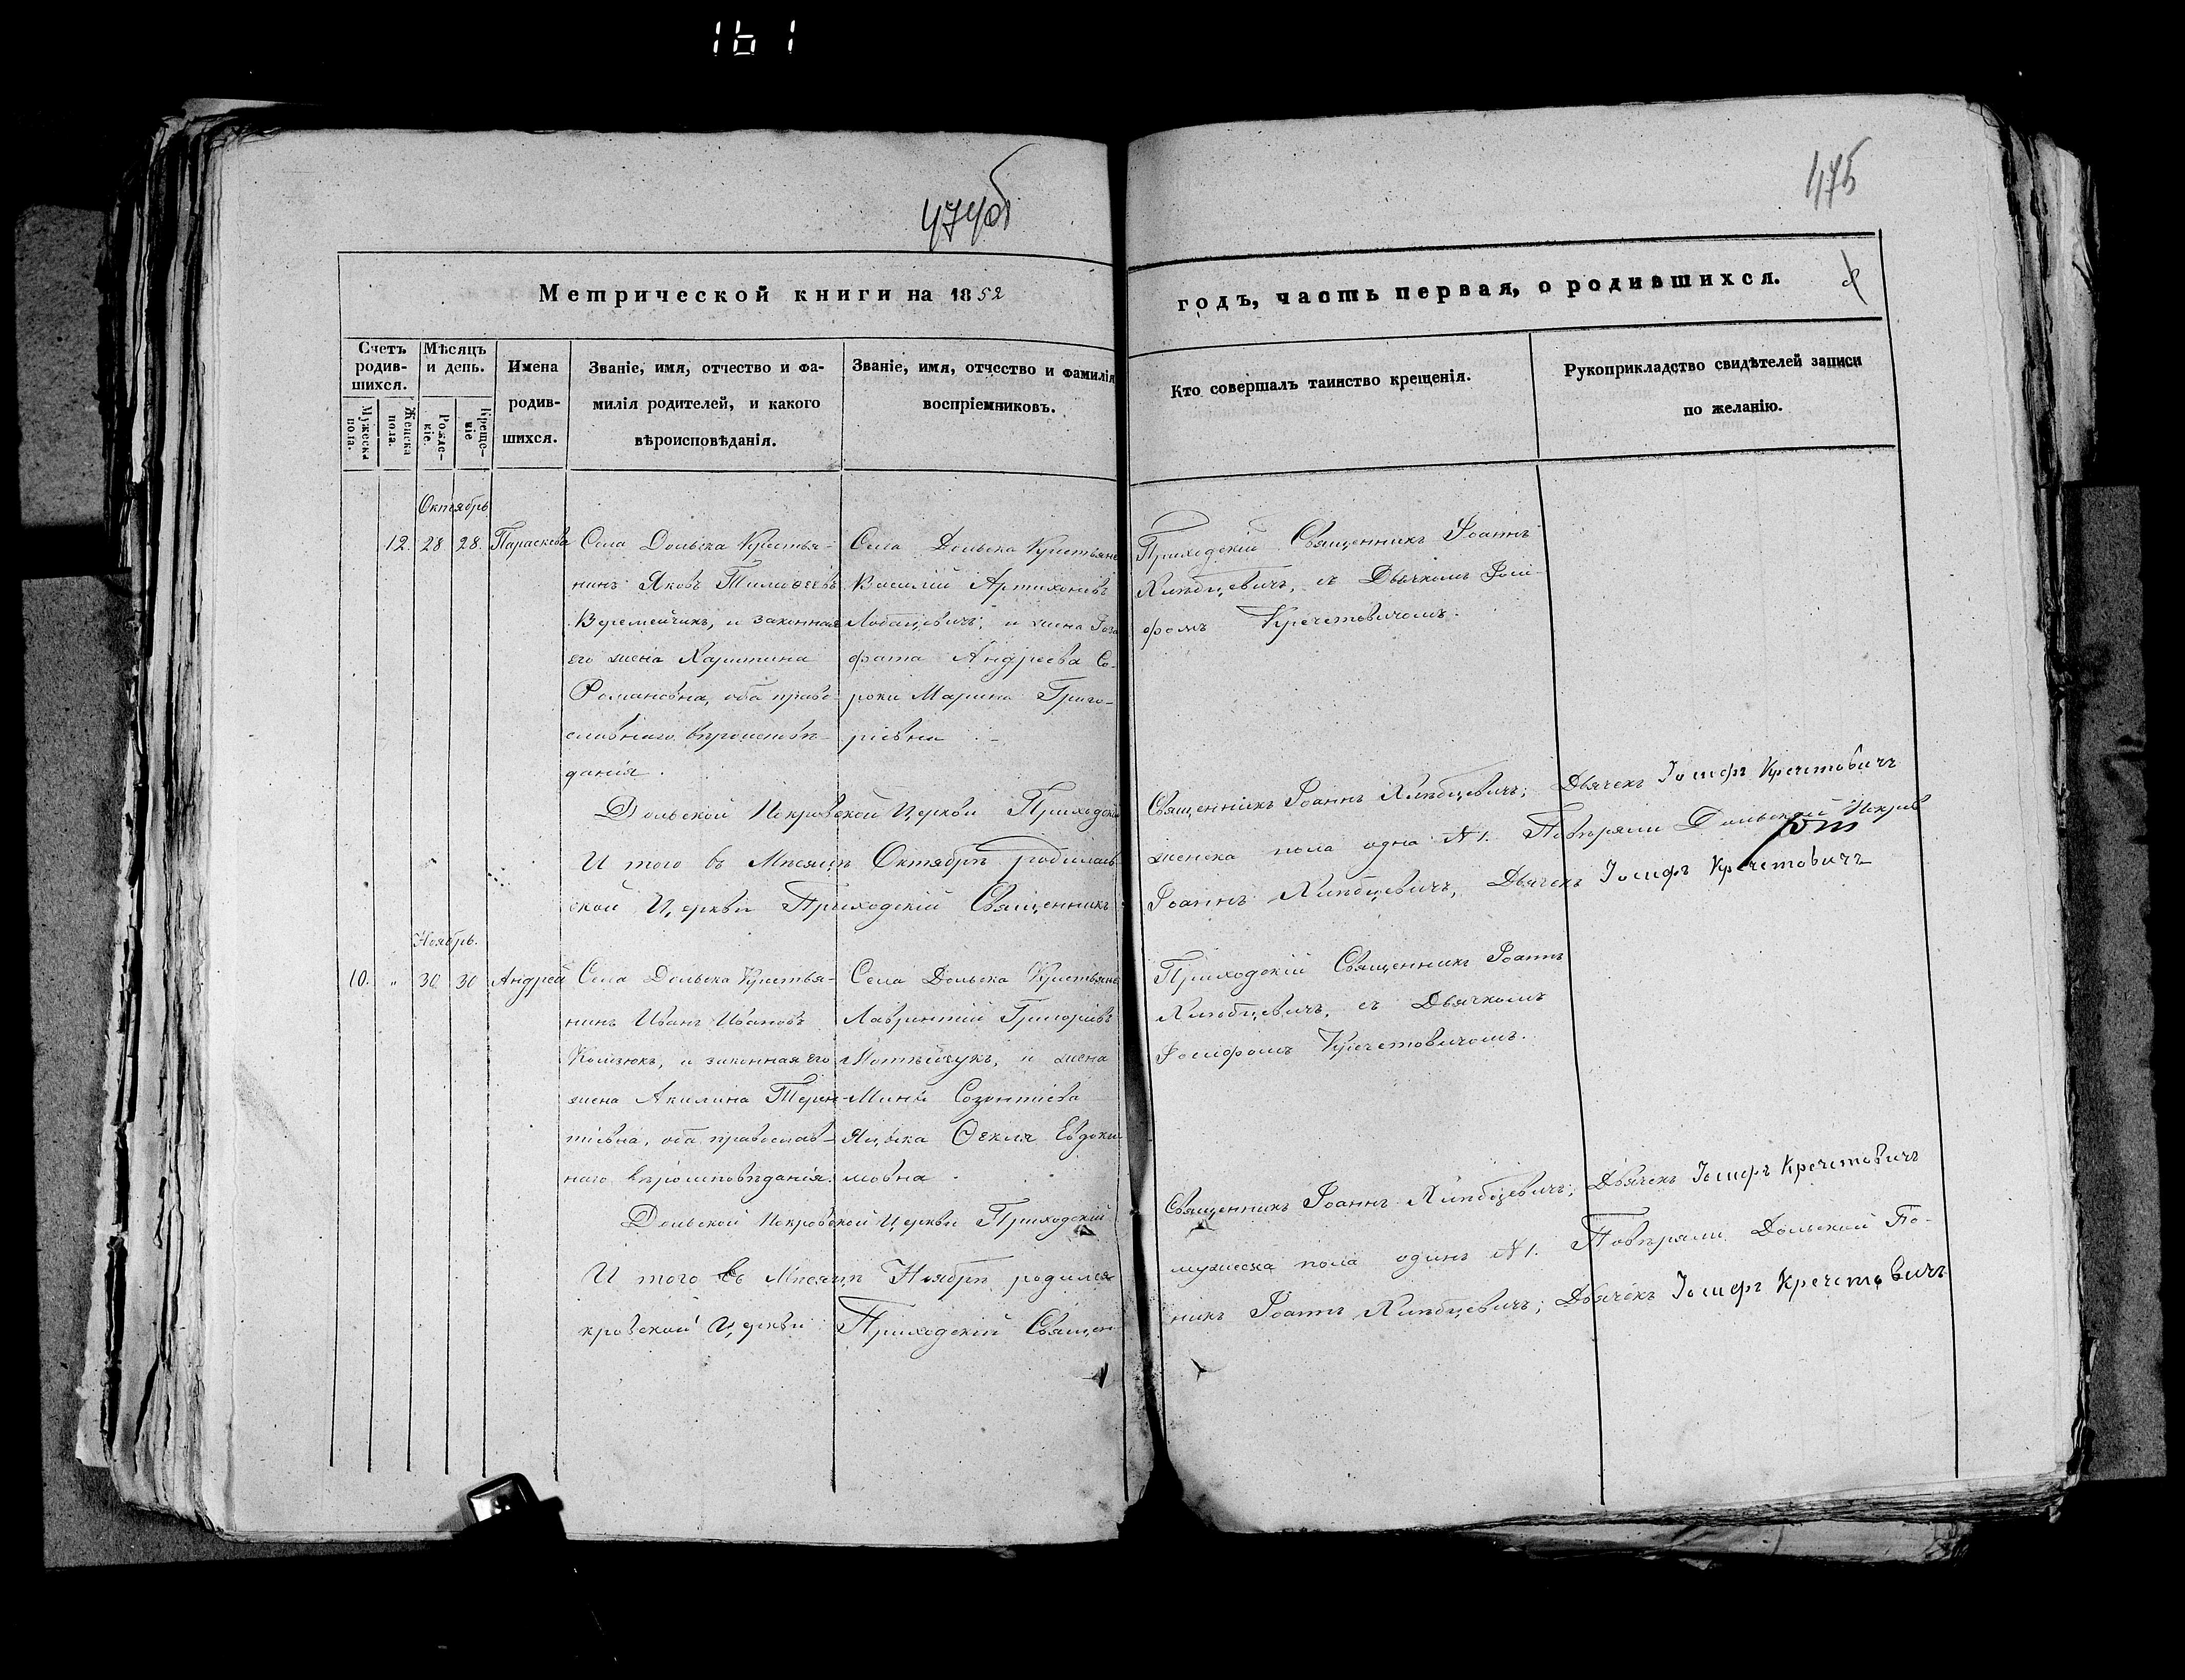 161
474об
475
Метрической книги на 1852
годъ, часть первая, о родившихся.
Счетъ родив-шихся.
Мужеска пола.
Женска пола.
Мѣсяцъ и день.
Рожде-ніе.
Креще-ніе
Имена
родив-
шихся.
Званіе, имя, отчество и фа-
милія родителей, и какого
вѣроисповѣданія.
Званіе, имя, отчество и фамилія
воспріемниковъ.
Кто совершалъ таинство крещенія.
Рукоприкладство свидѣтелей записи
по желанію.
Октябрь
12. 28 28. Параскева
Села Дольска Крестья-
нинъ Яковъ Тимоѳеевъ
Веремейчикъ, и законная
его жена Харитина
Романовна, оба право-
славнаго вѣроисповѣ-
данія.
Села Дольска Крестьяне
Василій
и жена
фата Андреева Со-
роки Марина Григо-
ріевна
Приходскій Священникъ Іоаннъ
Хлѣбцевичъ, съ Дьячкомъ Іоси-
фомъ Кречетовичомъ.
Дольской Покровской Церкви Приходскій
Священникъ Іоаннъ Хлѣбцевичъ; Дьячекъ Іосифъ Кречетовичъ
И того въ Мѣсяцѣ Октябрѣ родилась
женска пола одна №1. Повѣряли Дольской Покров
ской Церкви Приходскій Священникъ
Іоаннъ Хлѣбцевичъ, Дьячекъ Іосифъ Кречетовичъ
Ноябрь.
10. " 30 30 Андрей
Села Дольска Крестья-
нинъ Иванъ Ивановъ
и законная его
жена Акилина Терен-
тіевна, оба православ-
наго вѣроисповѣданія.
Села Дольска Крестьяне
Лаврентій Григоріевъ
и жена
Мины Созонтіева
Яцыка Ѳекла Евдоки
мовна
Приходскій Священникъ Іоаннъ
Хлѣбцевичъ, съ Дьячкомъ
Іосифомъ Кречетовичомъ.
Дольской Покровской Церкви Приходскій
Священникъ Іоаннъ Хлѣбцевичъ; Дьячекъ Іосифъ Кречетовичъ
И того въ Мѣсяцѣ Ноябрѣ родился
мужеска пола одинъ №1. Повѣряли Дольской По-
кровской Церкви Приходскій Священ
никъ Іоаннъ Хлѣбцевичъ; Дьячекъ Іосифъ Кречетовичъ